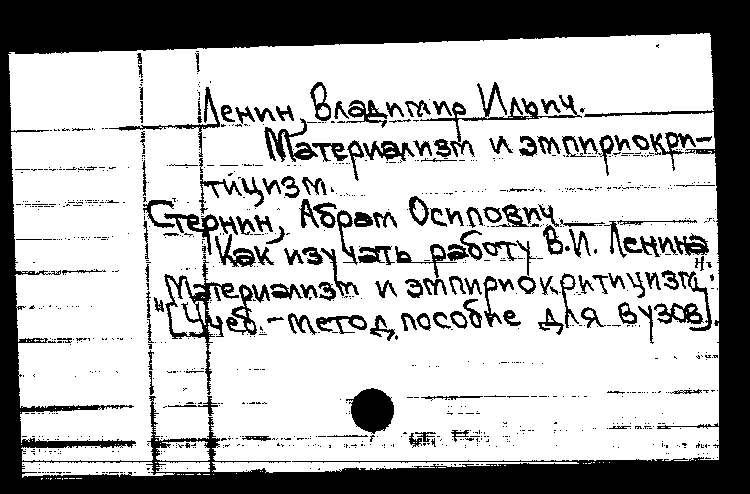 Ленин, Владимир Ильич.
Материализм и эмпириокри-
тицизм.
Стернин, Абрам Осипович.
Как изучать работу В.И. Ленина
"Материализм и эмпириокритицизм":
[Учеб.-метод. пособие для вузов].